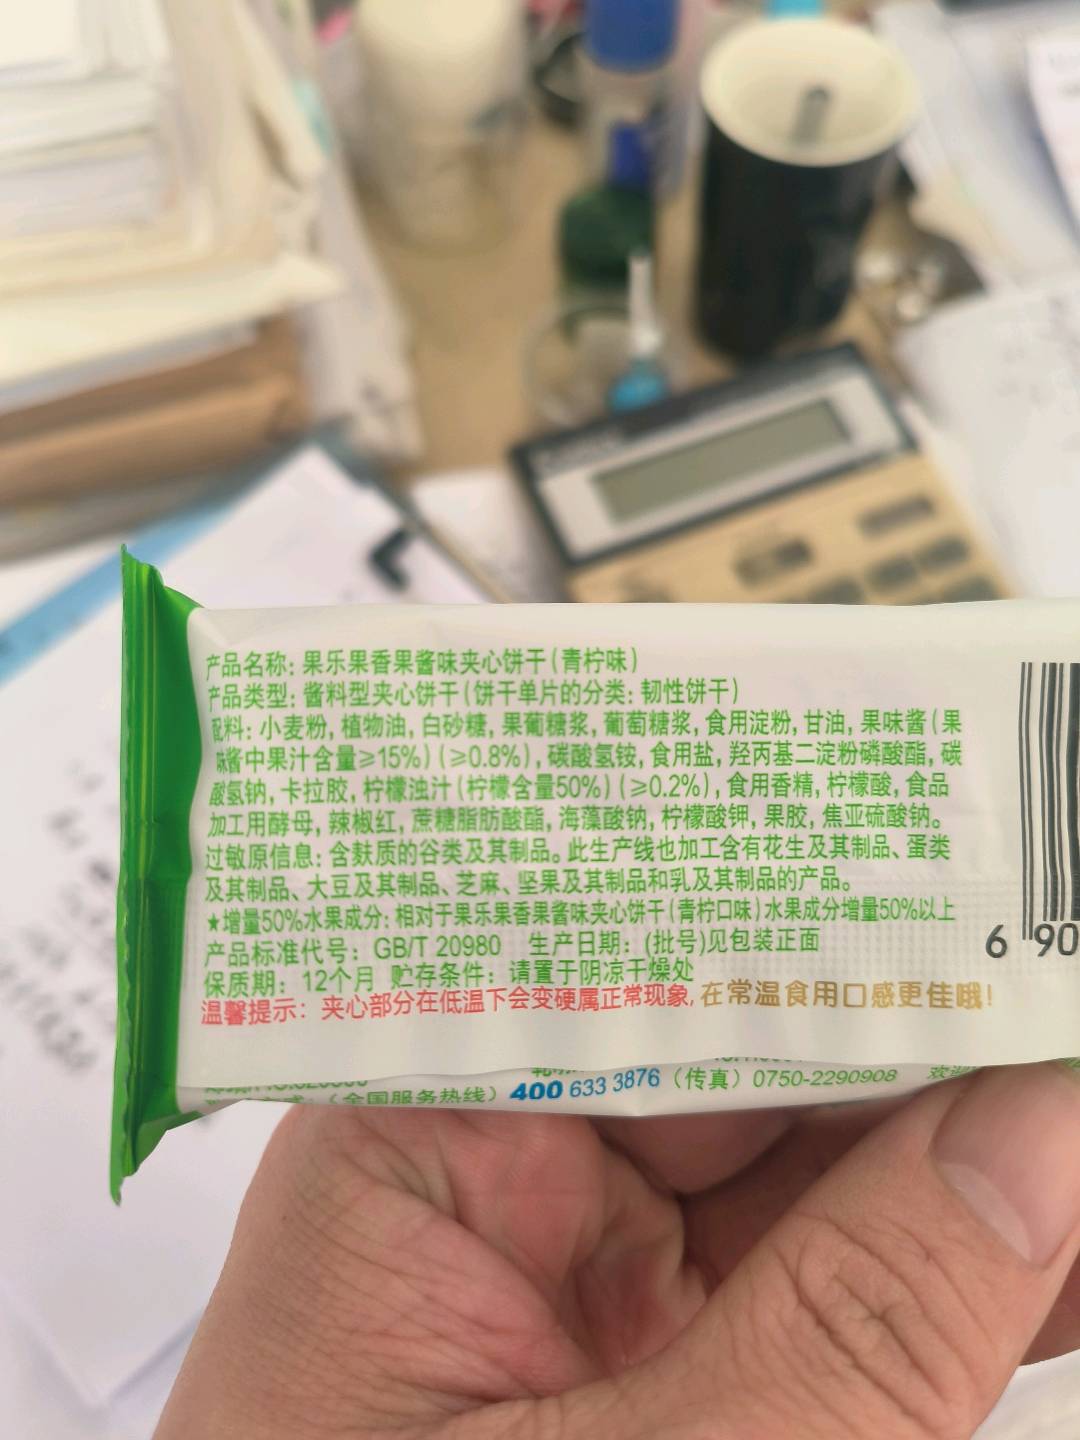 产品名称: 果乐果香果酱味夹心饼干(青柠味)
产品类型: 酱料型夹心饼干(饼干单片的分类: 韧性饼干)
配料: 小麦粉, 植物油, 白砂糖, 果葡糖浆, 葡萄糖浆, 食用淀粉, 甘油, 果味酱(果
味酱中果汁含量≥15%)(≥0.8%), 碳酸氢铵, 食用盐, 羟丙基二淀粉磷酸酯, 碳
酸氢钠, 卡拉胶, 柠檬浊汁(柠檬含量50%)(≥0.2%), 食用香精, 柠檬酸, 食品
加工用酵母, 辣椒红, 蔗糖脂肪酸酯, 海藻酸钠, 柠檬酸钾, 果胶, 焦亚硫酸钠。
过敏原信息: 含麸质的谷类及其制品。此生产线也加工含有花生及其制品、蛋类
及其制品、大豆及其制品、芝麻、坚果及其制品和乳及其制品的产品。
★增量50%水果成分: 相对于果乐果香果酱味夹心饼干(青柠口味)水果成分增量50%以上
产品标准代号: GB/T 20980 生产日期: (批号)见包装正面
保质期: 12个月 贮存条件: 请置于阴凉干燥处
温馨提示: 夹心部分在低温下会变硬属正常现象, 在常温食用口感更佳哦!
(全国服务热线) 400 633 3876 (传真) 0750-2290908
6 90